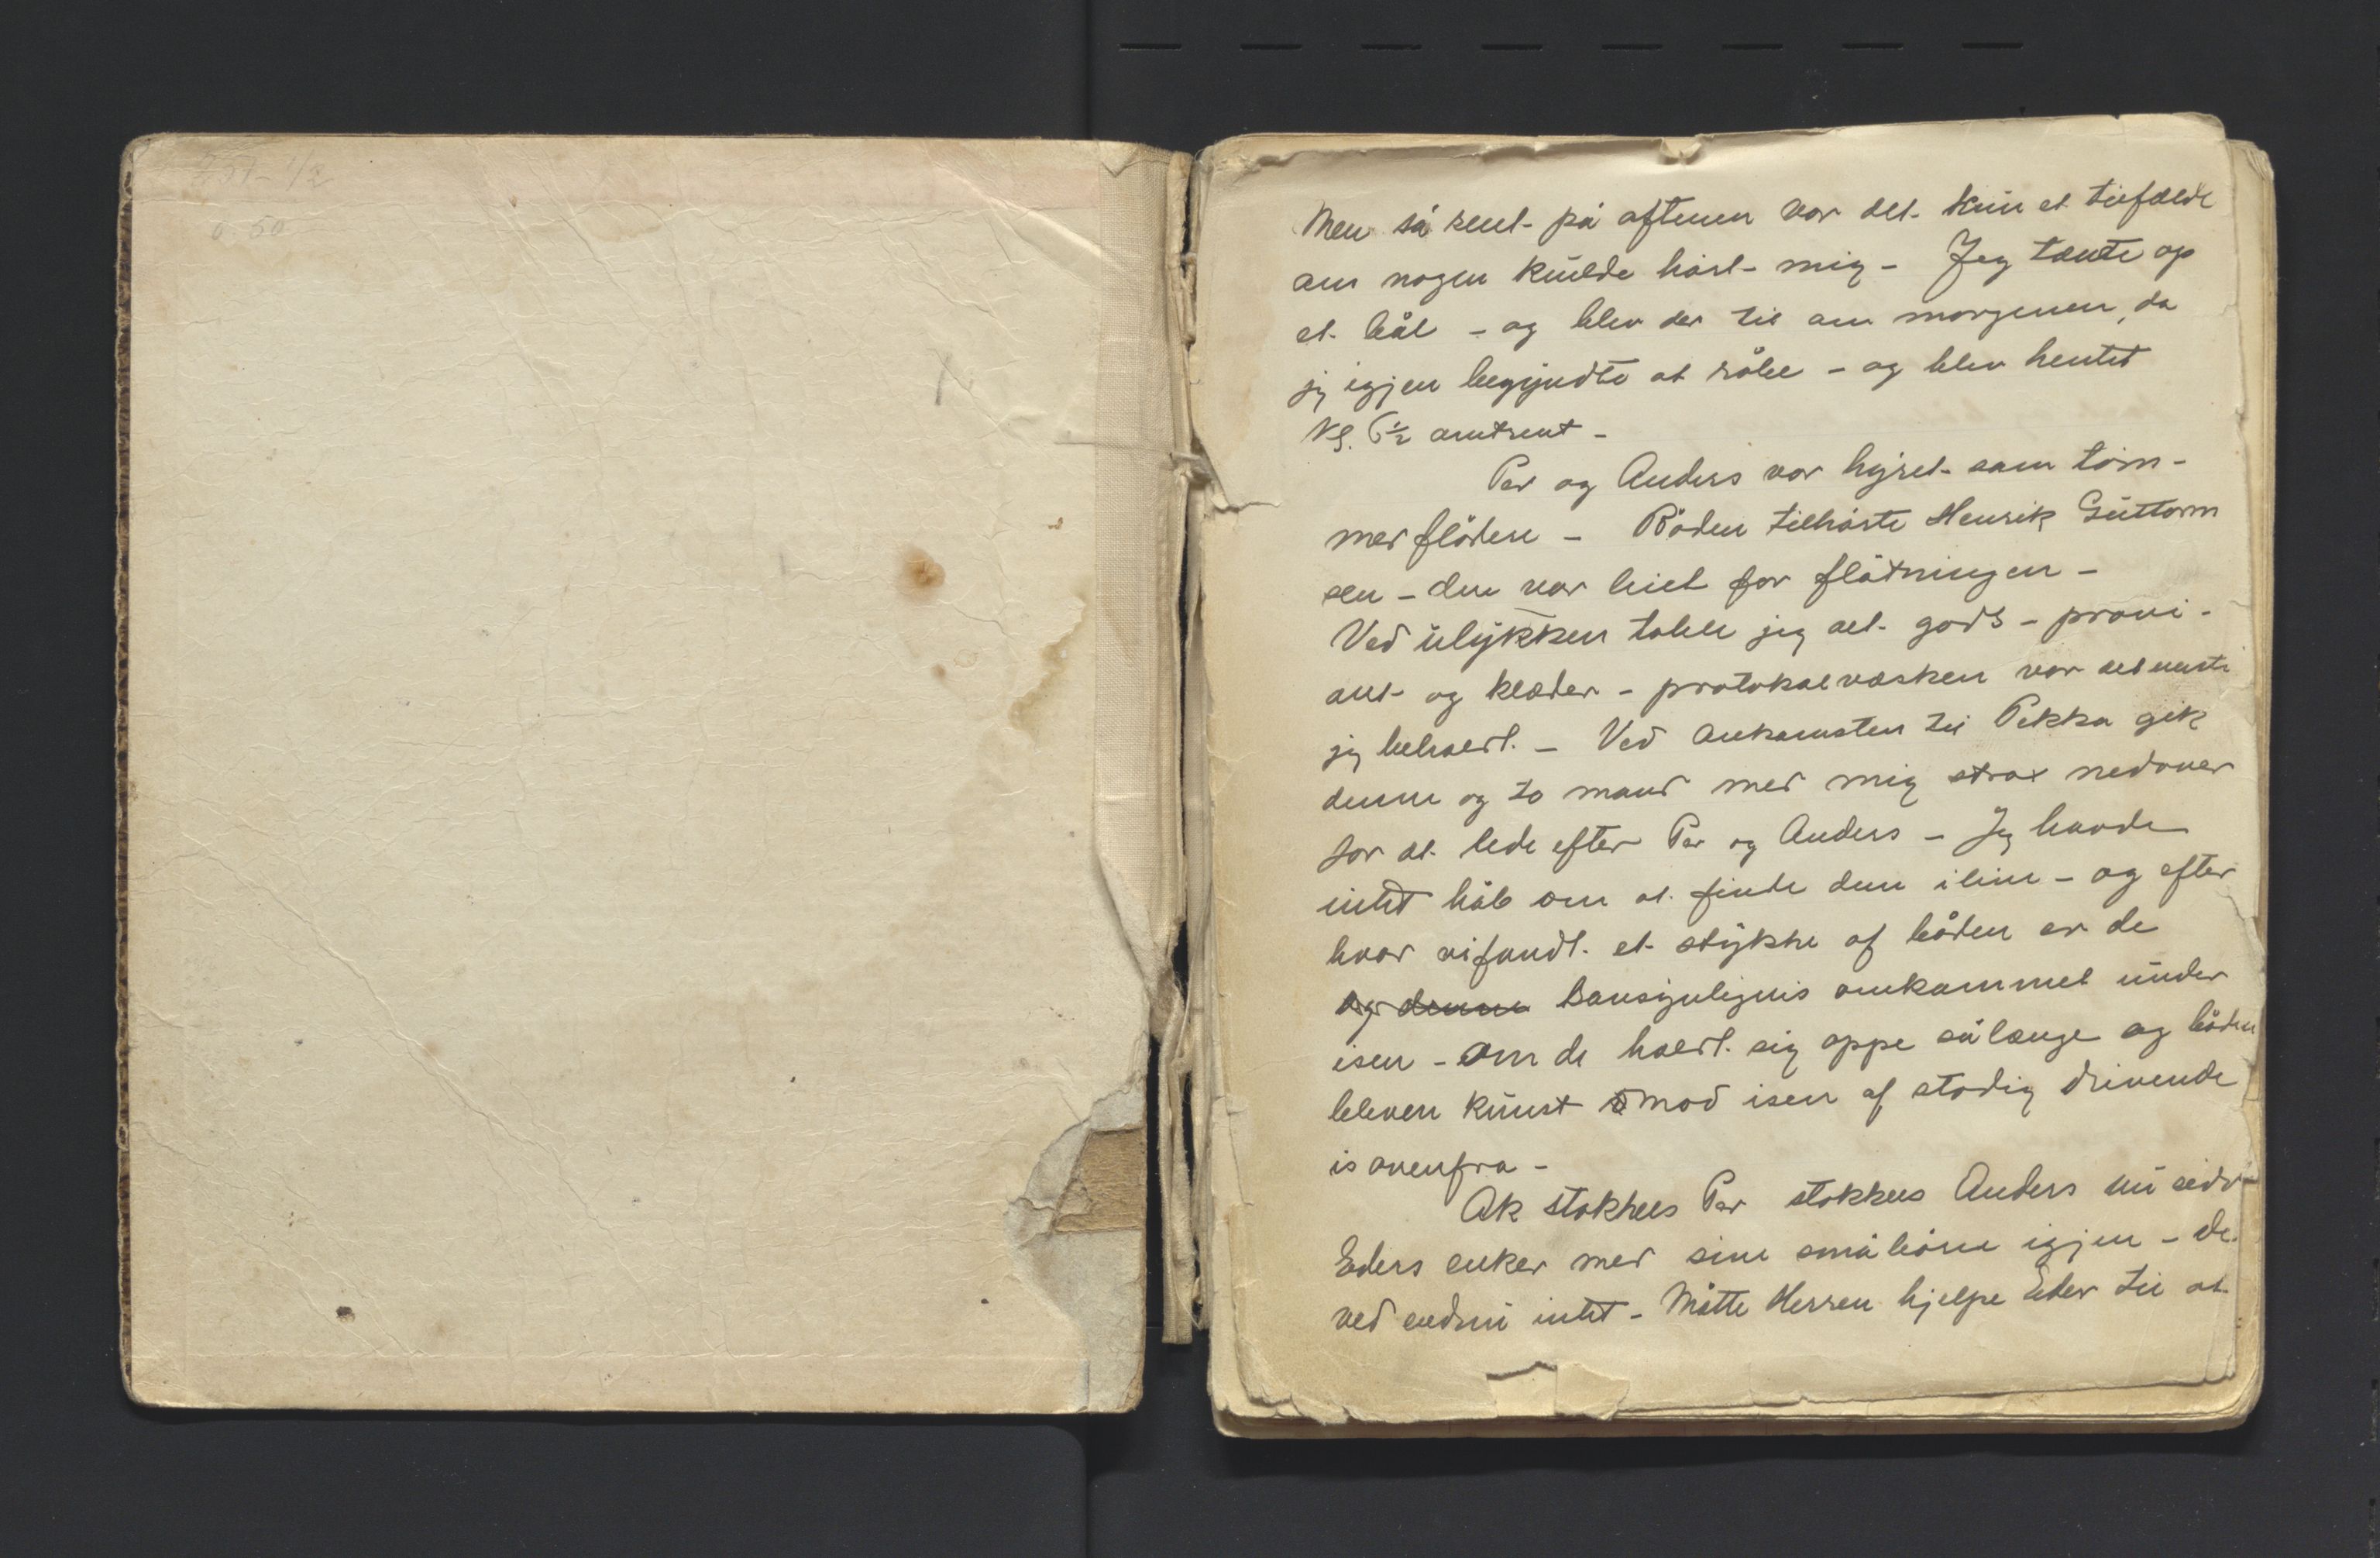 Men så sent på aftenen var det kun et tilfælde
om nogen kunde hørt mig - Jeg tændte op
et bål - og blev der til om morgenen, da
jeg igjen begyndte at råbe - og blev hentet
Kl. 6½ omtrent -
Per og Anders var hyret som töm-
merflödere - Båden tilhörte Henrik Guttorm
sen - den var leiet for flötningen -
Ved ulykken tabte jeg alt gods - provi-
ant og klæder - protokolvæsken var det eneste
jeg beholdt. - Ved ankomsten til Pekka gik
denne og to mand med mig strax nedover
for at lede efter Per og Anders - Jeg havde
intet håb om at finde dem ilive - og efter
hvor vi fandt et stykke af båden er de
og denne sansynligvis omkommet under
isen - om de holdt sig oppe så længe og båden
bleven knust mod isen af stadig drivende
is ovenfra -
Ak stakkels Per stakkels Anders nu sidder
Eders enker med sine små börn igjen - de
ved endnu intet - Måtte Herren hjelpe Eder til at